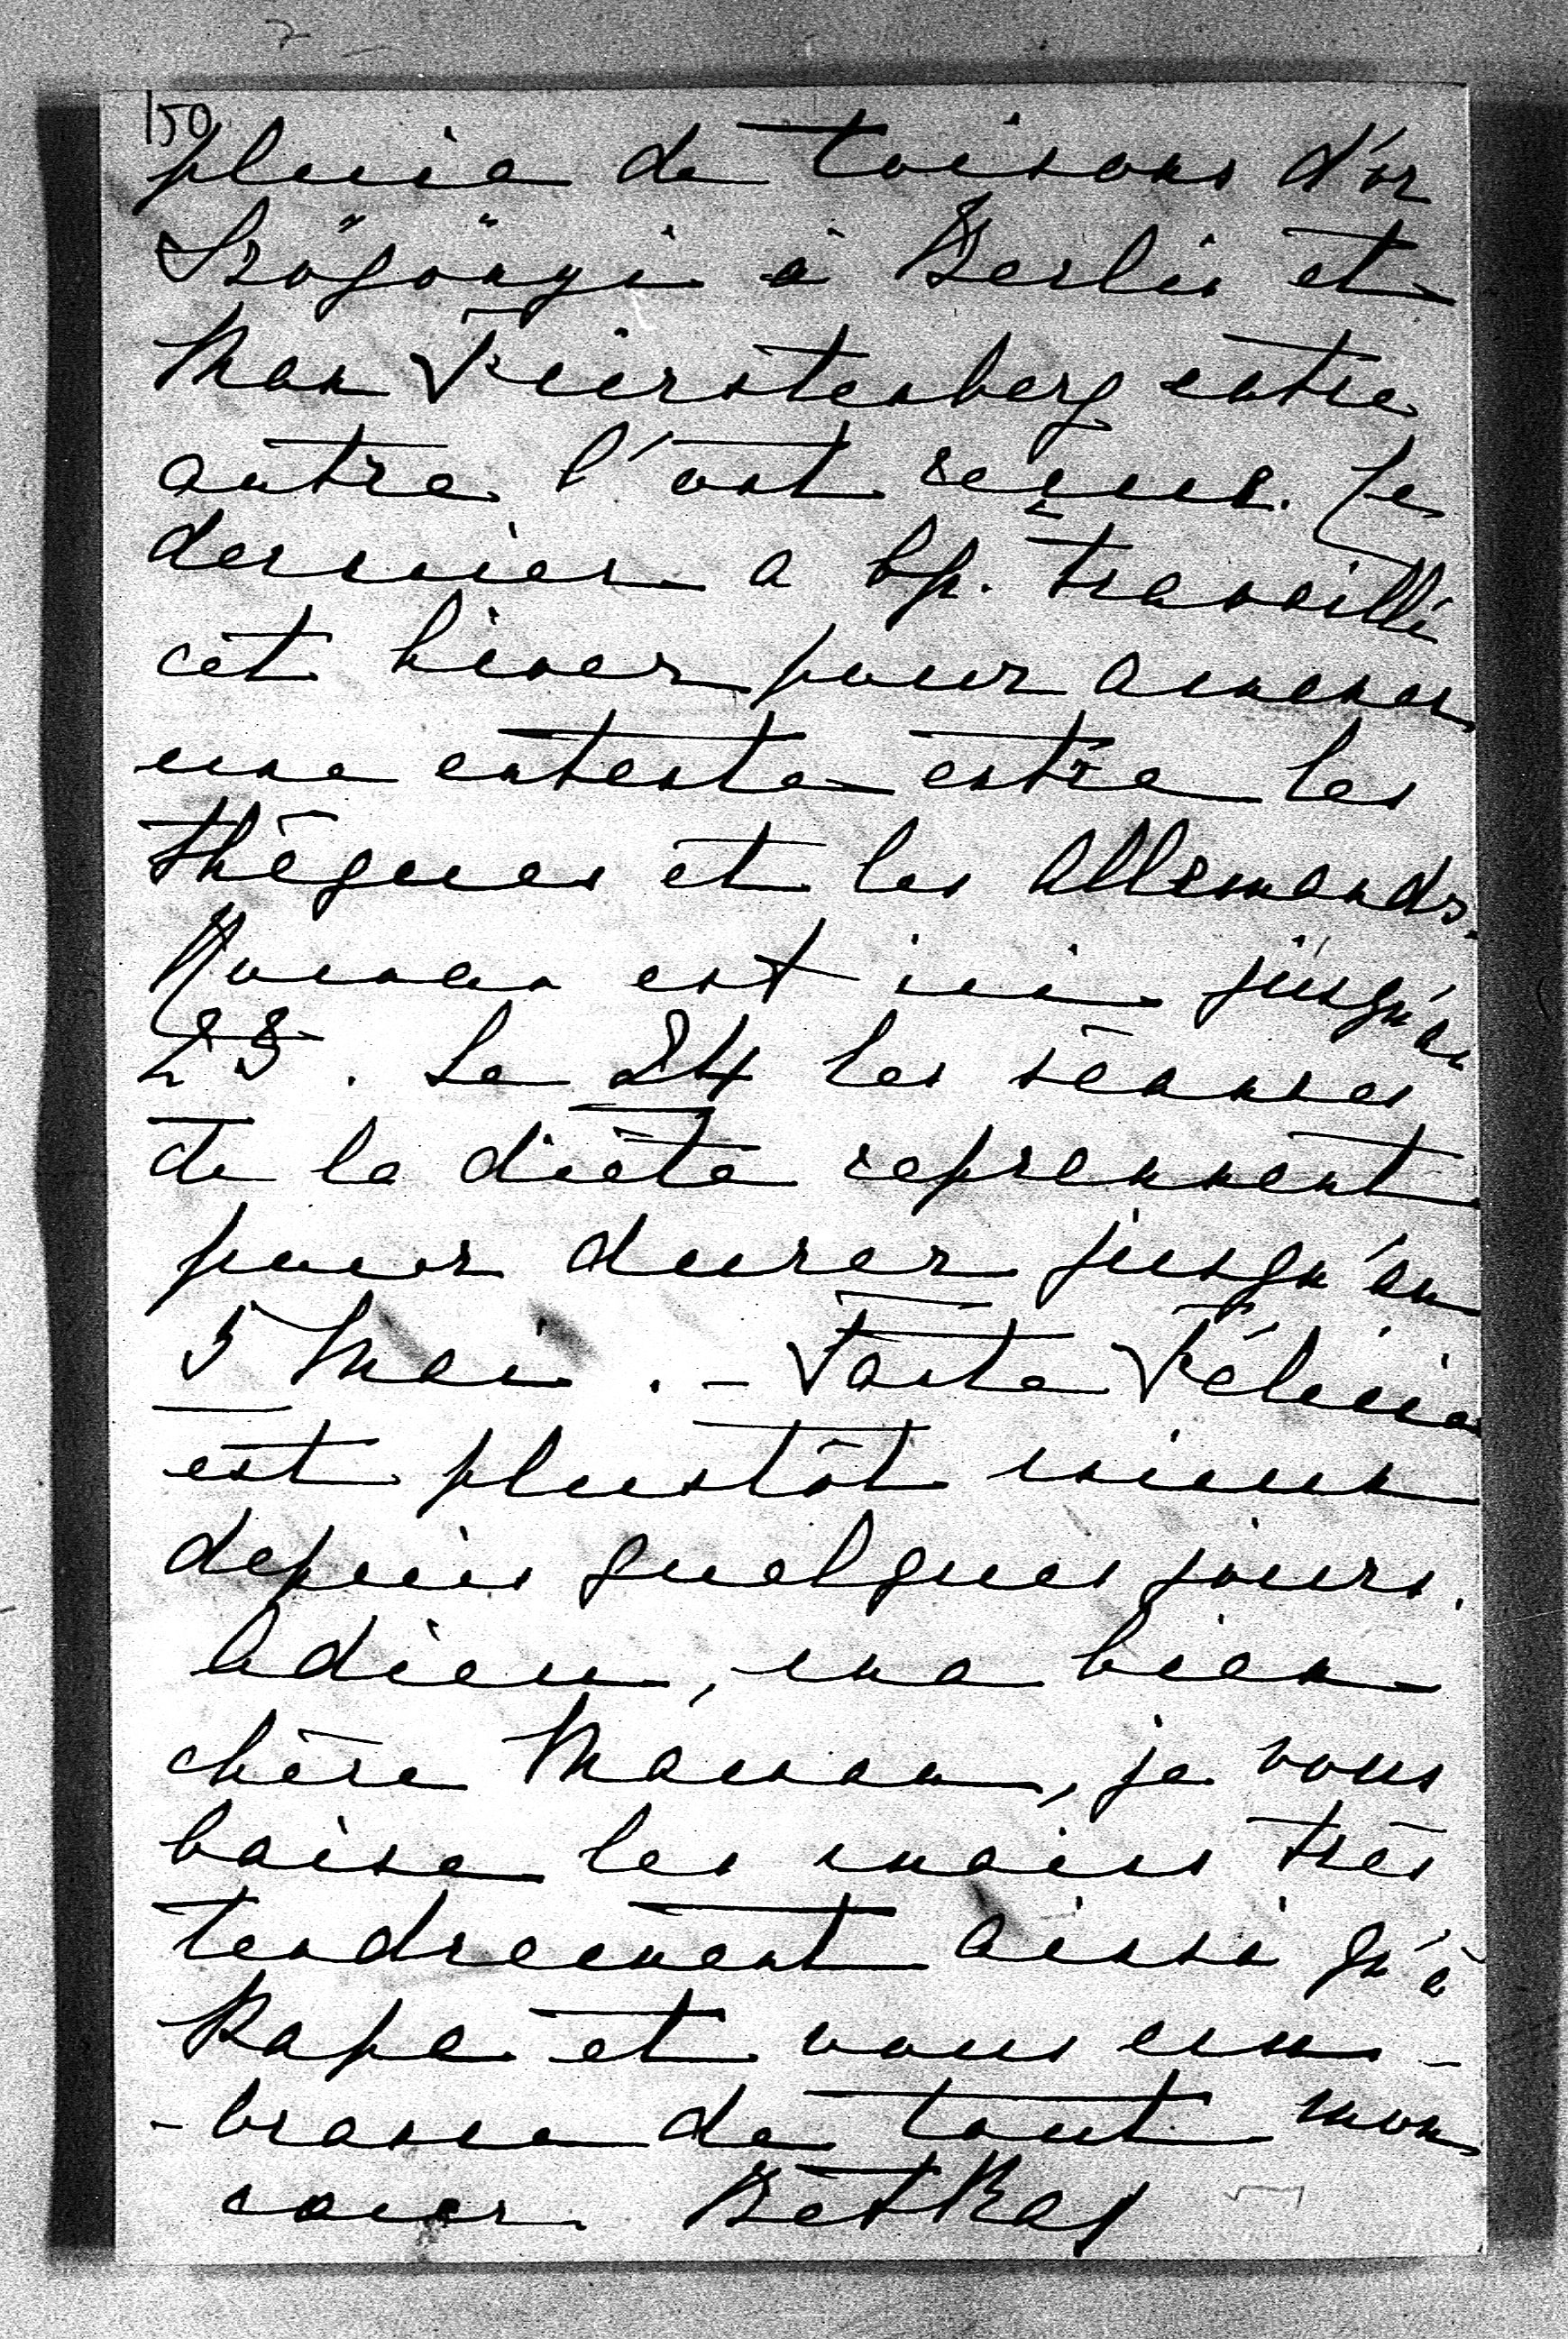 150
pluie de toisons d'or
Szögönyi à Berlin et
Max Fürstenberg entre
autre l'ont reçue. Ce
dernier a bp. travaillé
cet hiver pour amener
une entente entre les
thèques et les Allemands.
est ici jusqu'au
23. Le 24 les séances
de la diète reprennent
pour durer jusqu'au
5 Mai. – Tante Félicie
est plustôt mieux
depuis quelques jours.
Adieu, ma bien
chère Maman, je vous
baise les mains très
tendreement ainsi qu'à
Papa et vous em-
-brasse de tout mon
coeur.